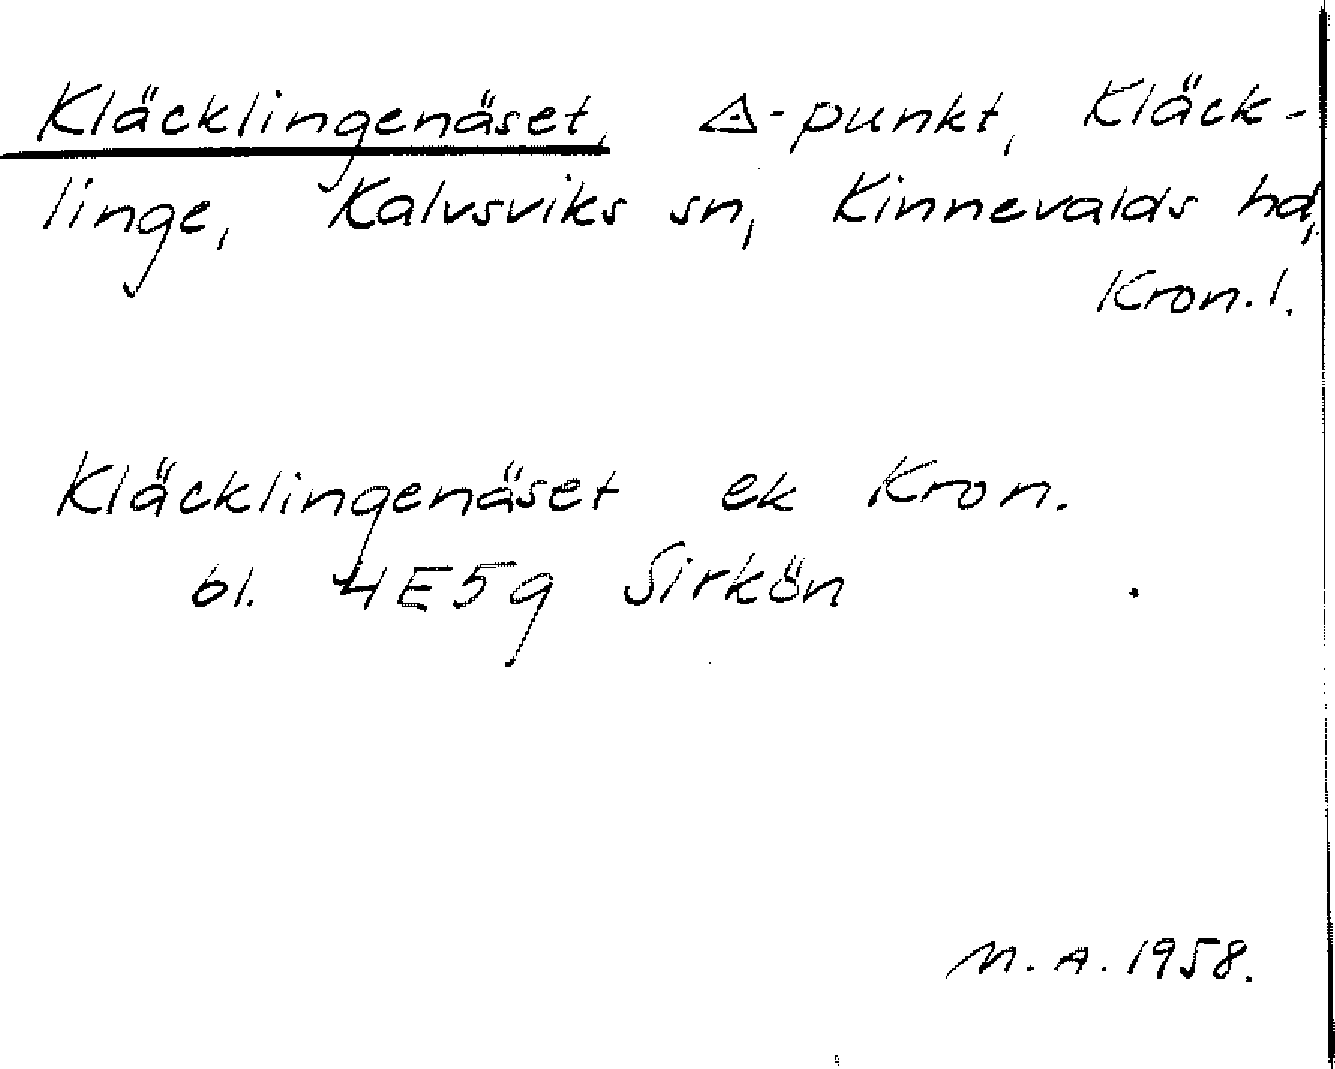 Kläcklingenäset, △-punkt, Kläck-
linge, Kalvsviks sn, Kinnevalds hd,
Kron.l.
Kläcklingenäset ek Kron.
bl. 4E5g Sirkön
M.A. 1958.